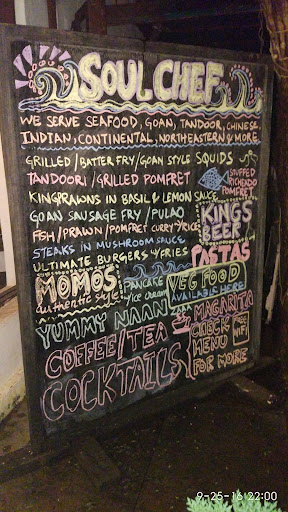 SOUL CHEF
WE SERVE SEAFOOD, GOAN, TANDOOR, CHINESE,
INDIAN, CONTINENTAL, NORTHEASTERN & MORE.
GRILLED / BATTER FRY / GOAN STYLE SQUIDS
TANDOORI / GRILLED POMFRET
STUFFED
RICHENDO
POMFRET
KINGPRAWNS IN BASIL & LEMON SAUCE
GOAN SAUSAGE FRY / PULAO
FISH / PRAWN / POMFRET CURRY & RICE
KINGS
BEER
STEAKS IN MUSHROOM SAUCE
ULTIMATE BURGERS & FRIES
PASTAS
MOMOS
authentic style
PANCAKE
ICE CREAM
VEG FOOD
AVAILABLE HERE
YUMMY NAAN
MAGARITA
COFFEE/TEA
CHECK
MENU
FOR MORE
COCKTAILS
9-25-16 22:00